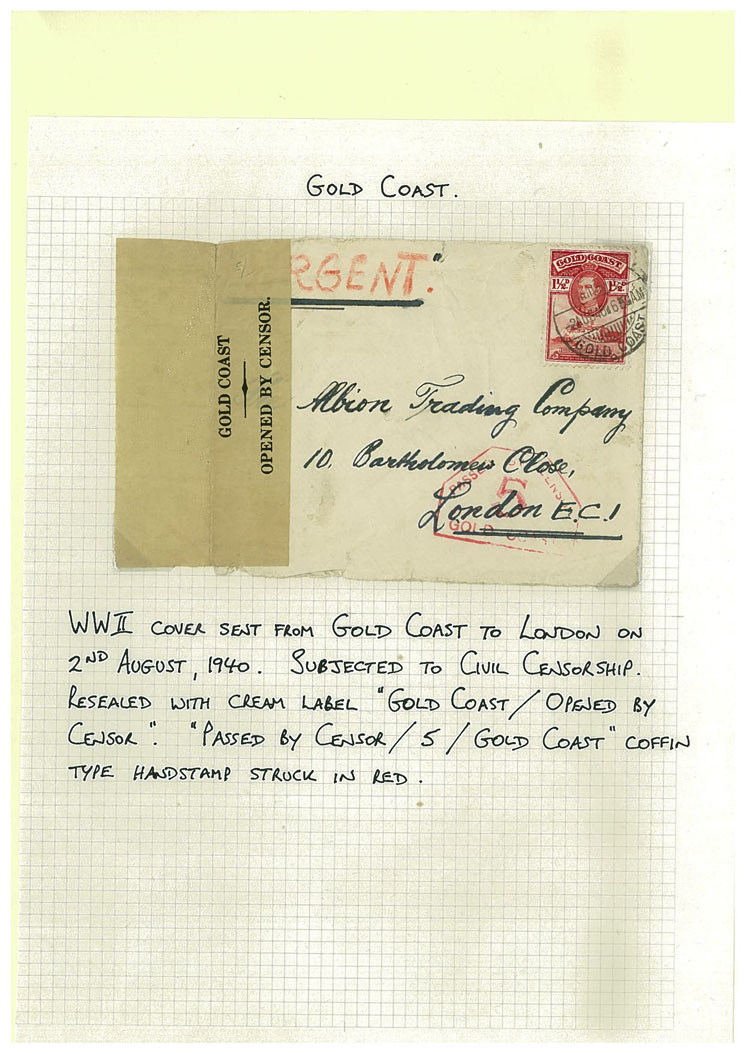 GOLD COAST.
RGENT."
GOLD COAST
1½D 1½D
GOLD COAST
GOLD COAST
OPENED BY CENSOR.
Albion Trading Company
10. Bartholomew Close,
London E.C.1
PASSED
5
GOLD COAST
WWII COVER SENT FROM GOLD COAST TO LONDON ON
2ND AUGUST, 1940. SUBJECTED TO CIVIL CENSORSHIP.
RESEALED WITH CREAM LABEL "GOLD COAST / OPENED BY
CENSOR". "PASSED BY CENSOR / 5 / GOLD COAST" COFFIN
TYPE HANDSTAMP STRUCK IN RED.